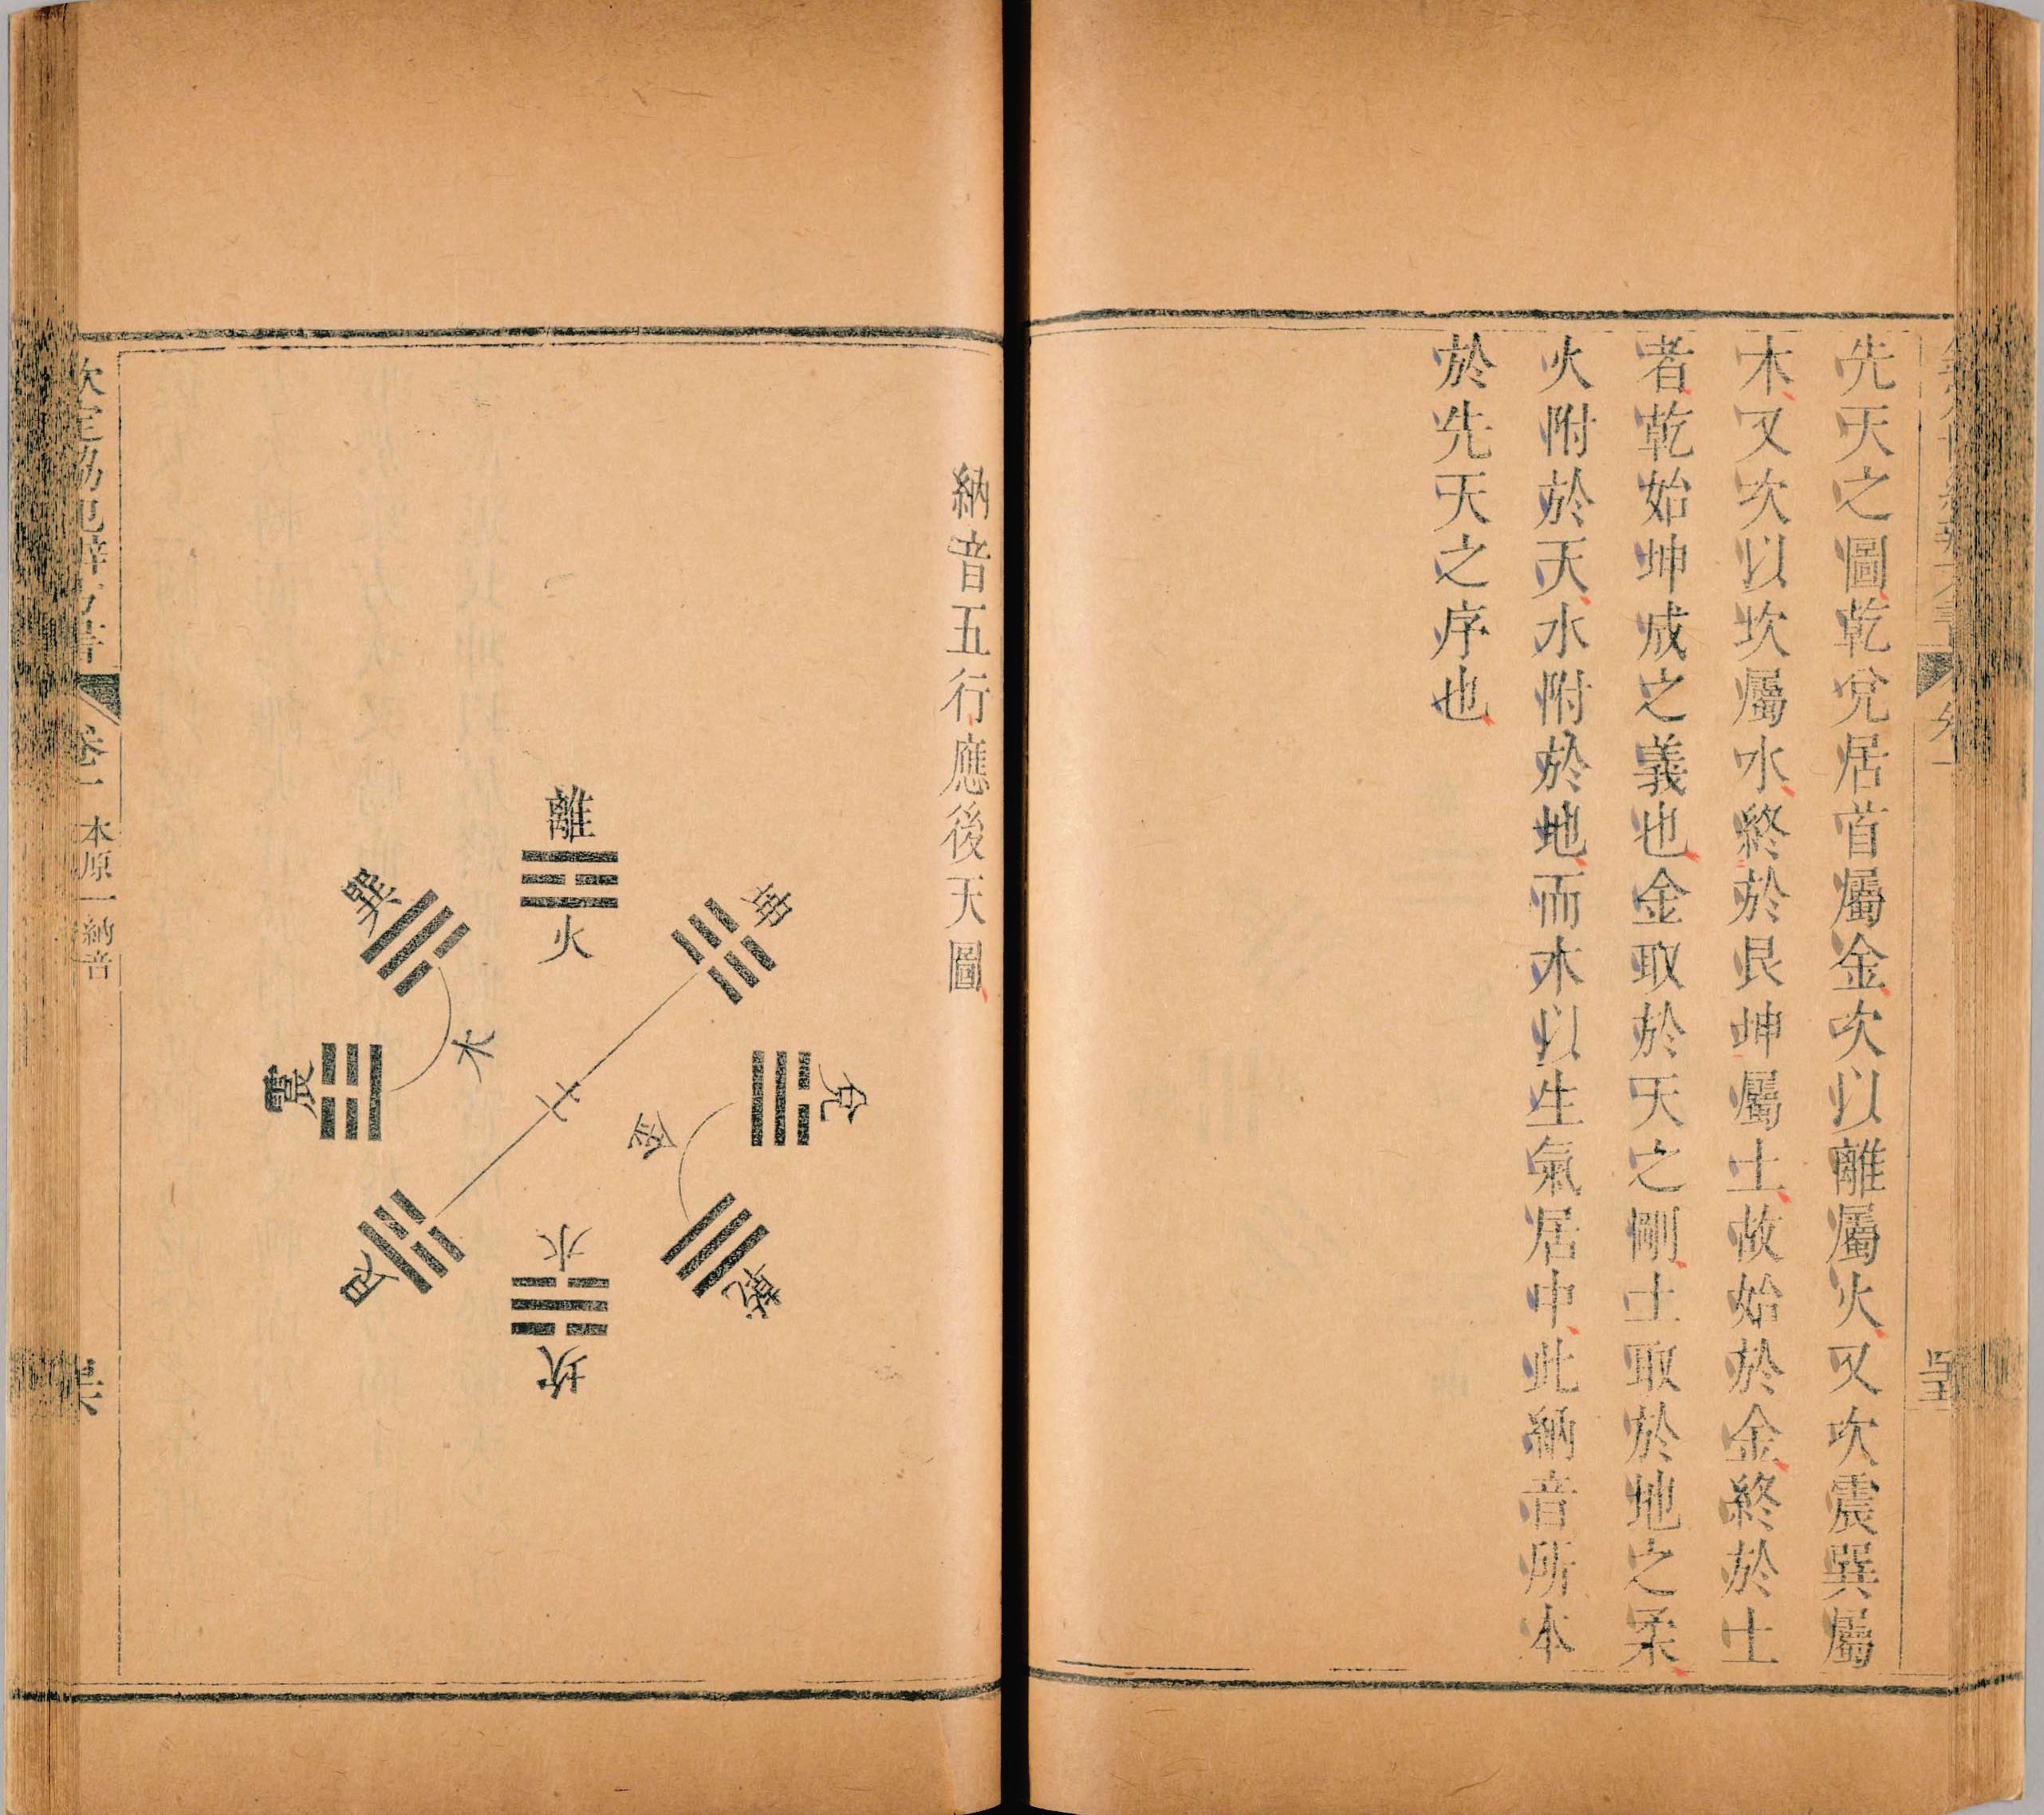 先天之圖乾兌居首屬金次以離屬火又次震巽屬
木又次以坎屬水終於艮坤屬土故始於金終於土
者乾始坤成之義也金取於天之剛土取於地之柔
火附於天水附於地而木以生氣居中此納音所本
於先天之序也
納音五行應後天圖
離
火
坤
兌
金
乾
水
坎
艮
土
震
木
巽
欽定協紀辨方書
卷一
本原一納音